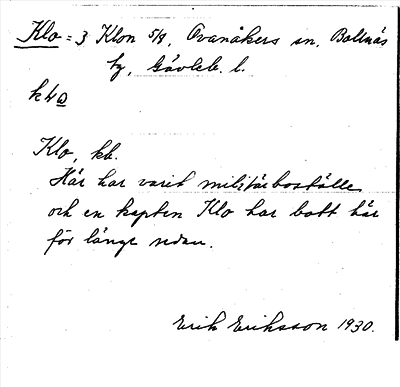 Klo = 3 Klon 5/9, Ovanåkers sn, Bollnäs
tg, Gävleb. l.
klo
Klo, kb.
Här har varit militärboställe
och en kapten Klo har bott här
för länge sedan.
Erik Eriksson 1930.